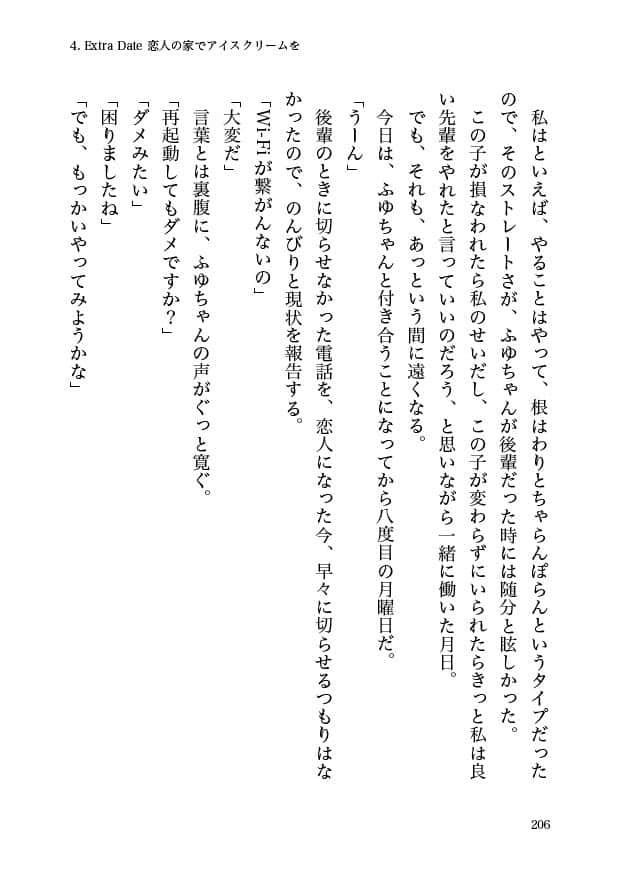 4. Extra Date 恋人の家でアイスクリームを
私はといえば、やることはやって、根はわりとちゃらんぽらんというタイプだった
ので、そのストレートさが、ふゆちゃんが後輩だった時には随分と眩しかった。
この子が損なわれたら私のせいだし、この子が変わらずにいられたらきっと私は良
い先輩をやれたと言っていいのだろう、と思いながら一緒に働いた月日。
でも、それも、あっという間に遠くなる。
今日は、ふゆちゃんと付き合うことになってから八度目の月曜日だ。
「うーん」
後輩のときに切らせなかった電話を、恋人になった今、早々に切らせるつもりはな
かったので、のんびりと現状を報告する。
「Wi-Fiが繋がんないの」
「大変だ」
言葉とは裏腹に、ふゆちゃんの声がぐっと寛ぐ。
「再起動してもダメですか？」
「ダメみたい」
「困りましたね」
「でも、もっかいやってみようかな」
206